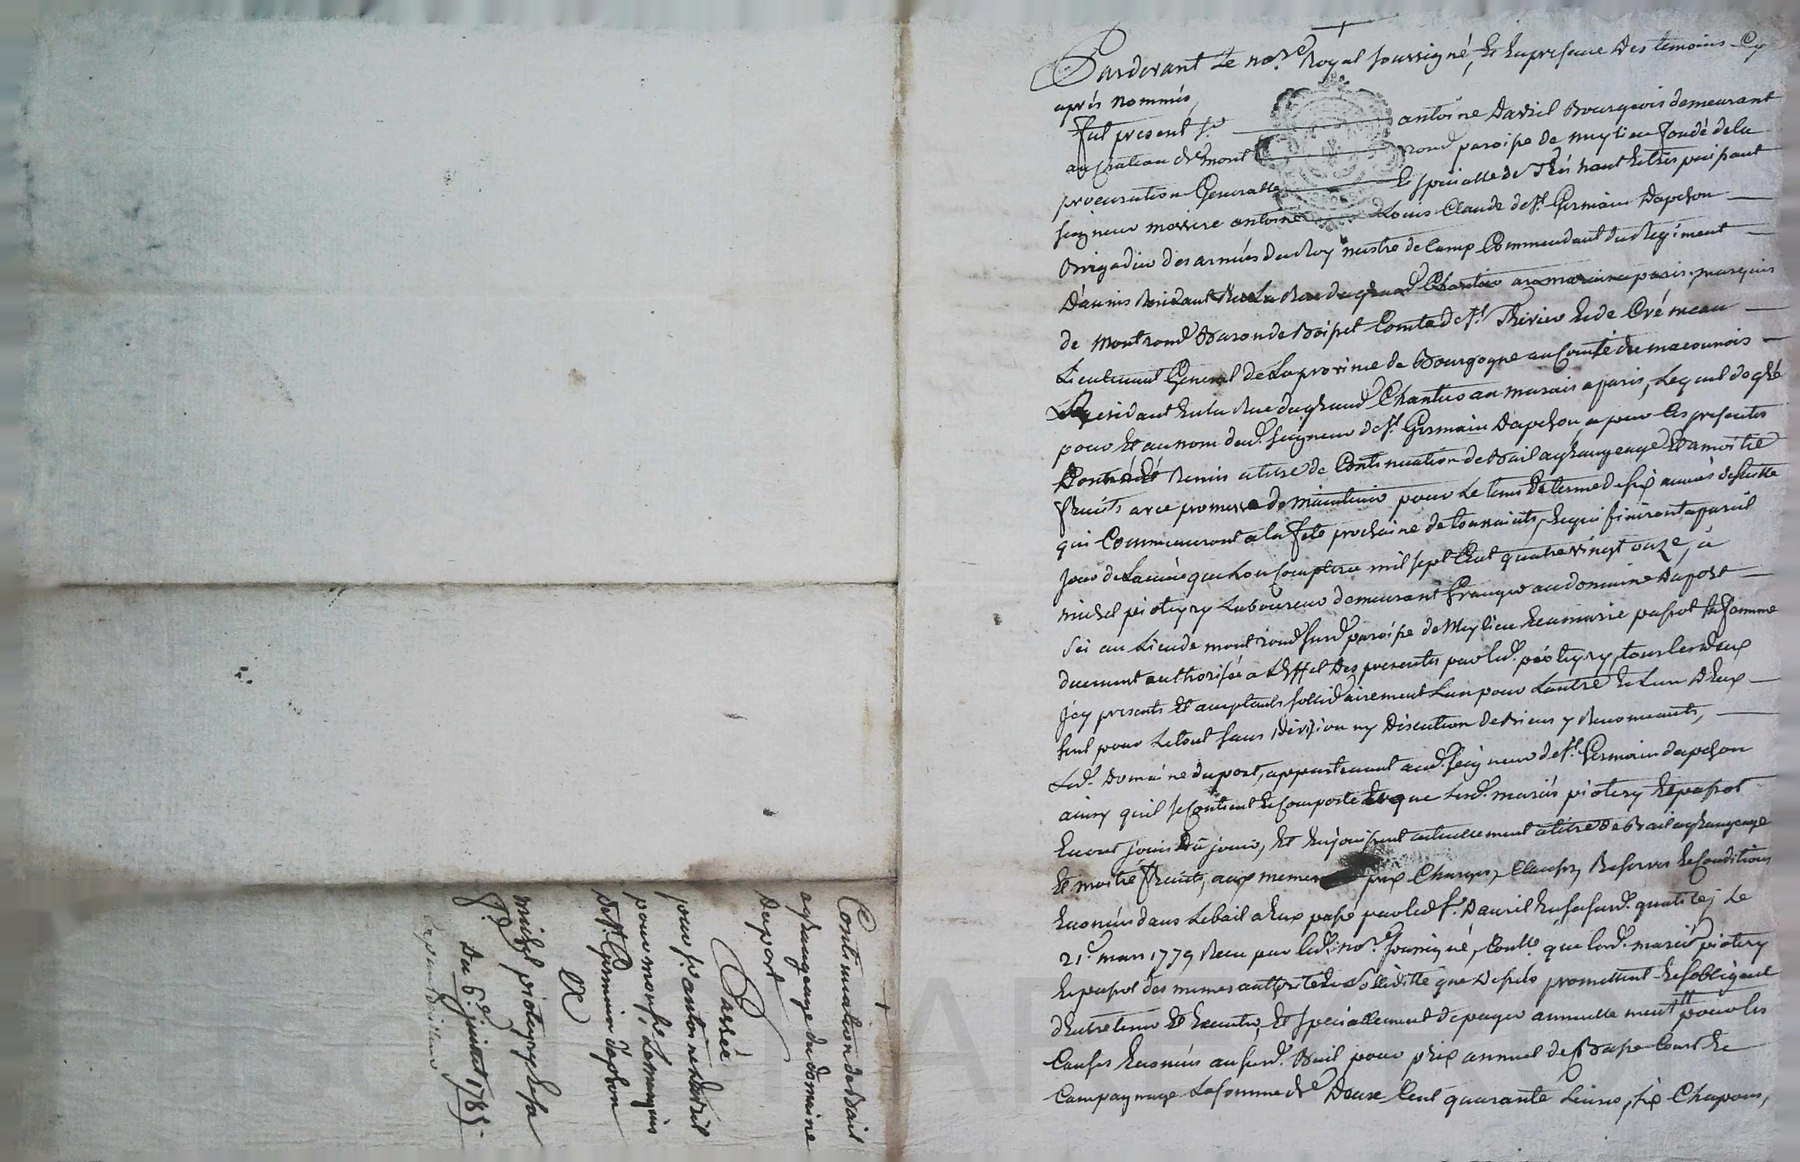 Pardevant Le no.re Royal soussigné, Et En presence Des temoins Cy
après nommés,
fut present s.r antoine Davril Bourgeois demeurant
au chateau de mont rond paroisse de meylieu fondé de la
procuration Generalle Et specialle de Trés haut Et trés puissant
seigneur messire antoine Louis Claude de st. Germain Dapchon
Brigadier des armées du Roy mestre de Camp Commandant du Regiment
Daunis Residant Rue du grand Chantier au marais a paris, marquis
de Montrond Baron de Boisset Comte de st. Thirier Et de Crémeau
Lieutenant General de La province de Bourgogne au Comté du maconnois
Residant En la Rue du grand Chantier au marais a paris, Lequel de gré
pour Et au nom dud. seigneur de st. Germain Dapchon, a par Les presentes
Remis a titre de Continuation de Bail a grangeage Et a moitié
fruits avec promesse de maintenir pour Le tems Et terme de six années de suitte
qui Commenceront a la fete prochaine de toussaints, Et qui finiront a pareil
jour de L'année que L'on Comptera mil sept Cent quatre vingt onze, a
michel pioteyry Laboureur demeurant Granger au domaine Duport
sci au Lieu de montrond susd. paroisse de Meylieu Et a marie passot sa femme
duement authorisée a L'effet Des presentes par led. pioteyry, tous les deux
icy presents Et acceptants sollidairement L'un pour L'autre Et L'un D'Eux
seul pour Le tout sans Division ny Discution de Biens y Renonceants,
Led. Domaine duport, appartenant aud. seigneur de st. Germain dapchon
ainsy qu'il se Contient Et Comporte Et que Lesd. mariés piotery Et passot
En ont joui Dû jouir, Et En jouissent actuellement a titre de Bail a grangeage
Et moitié fruits, aux memes prix Charges, Clauses, Reserves Et Conditions
Enoncés dans Le bail a Eux passé par led. s.r Davril En sa susd. qualité, Le
21.e mars 1779 Reçu par led. no.re soussigné, que Lesd. mariés piotery
Et passot des memes authorité Et Solidité que Dessus promettent Et s'obligent
d'Entretenir Et Executer, Et speciallement de payer annuellement pour les
Causes Enoncées au susd. Bail pour prix annuel de Basse Court Et
Campagnage La somme de Deux Cent quarante Livres, six Chapons,
Continuation de Bail
a grangeage du domaine
Duport
Passée
par s.r antoine Davril
pour mons.r Le marquis
de st. Germain d'apchon
A
michel pioteyry Et sa
f.e
Du 6.e juillet 1785.